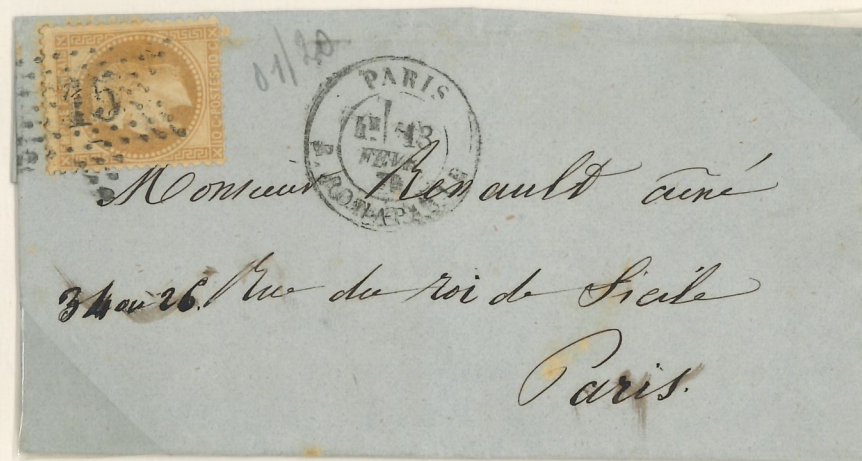 01/20
15
10 C POSTES 10 C
PARIS
1E 13
FEVR.
R. BONAPARTE
Monsieur Renault ainé
34 ou 26. Rue du roi de Sicile
Paris.